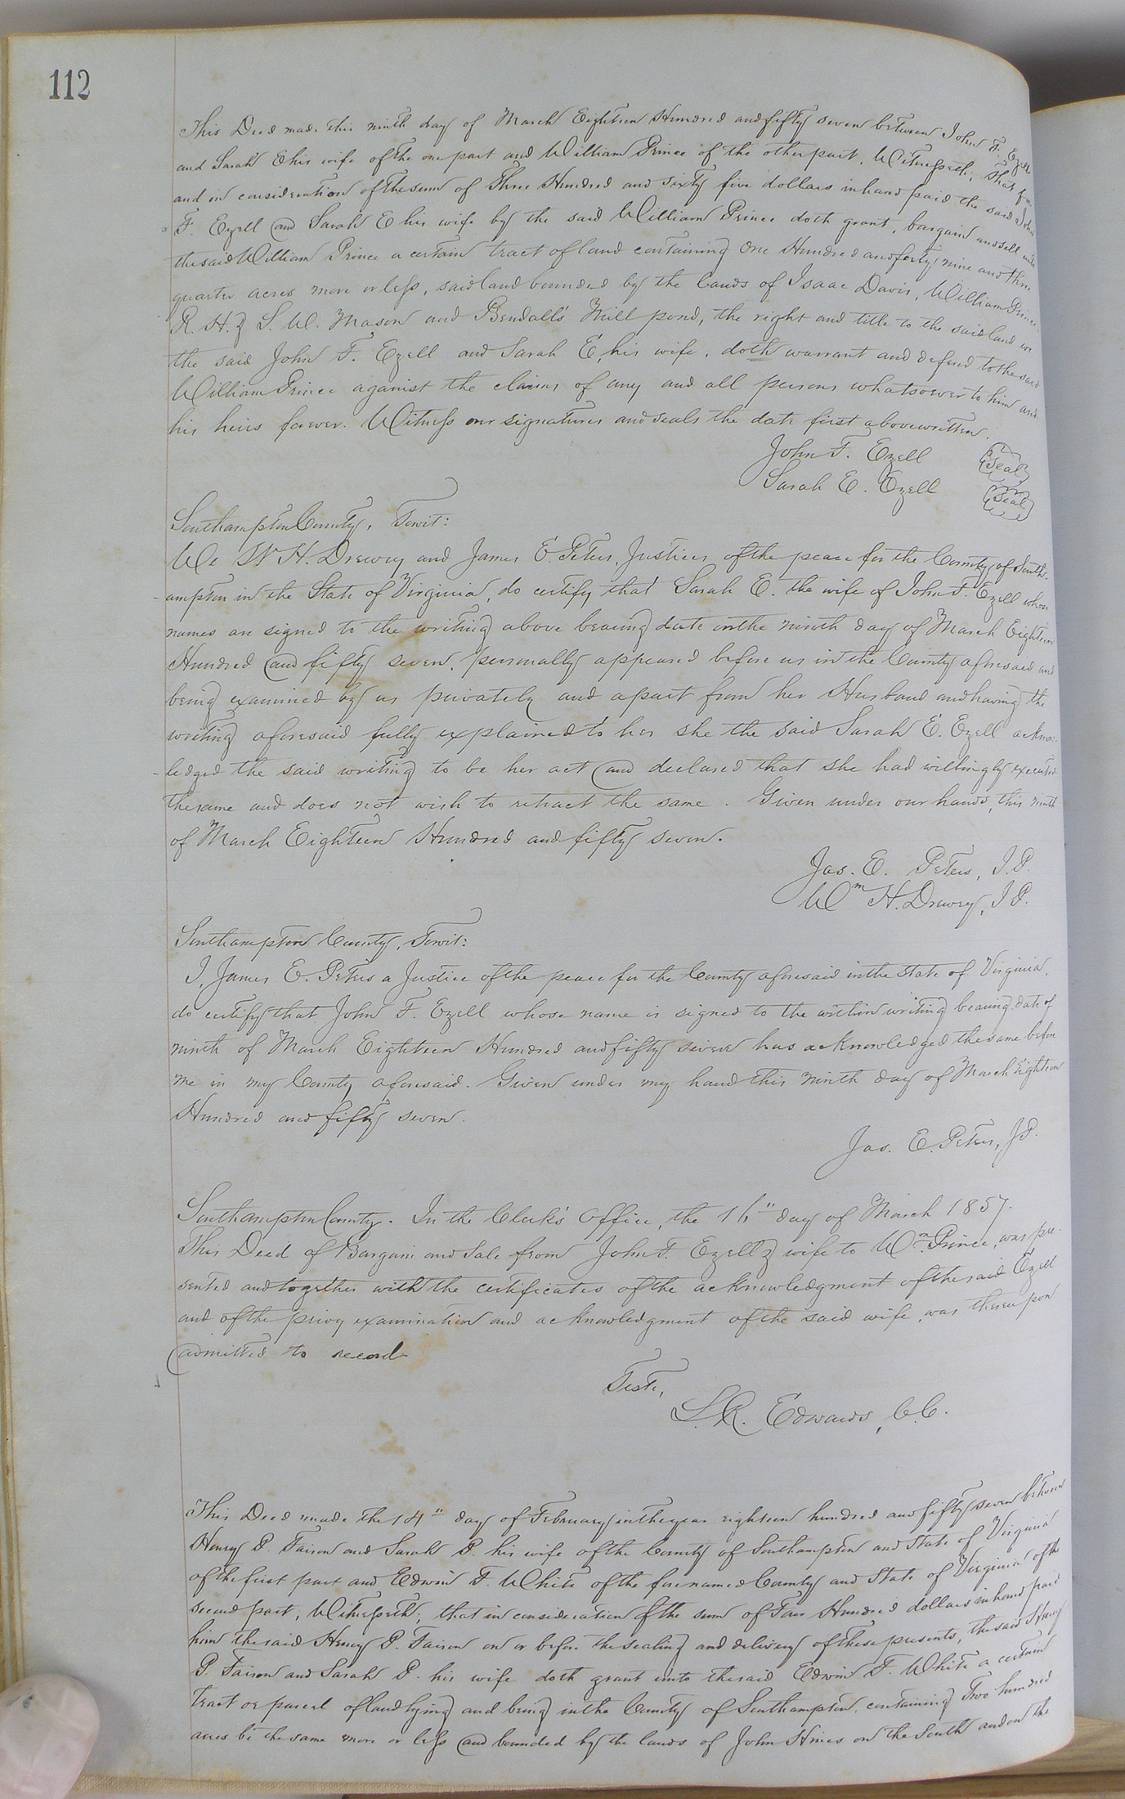 112
This Deed made this ninth day of March Eighteen Hundred and fifty seven between John F. Ezell
and Sarah E his wife of the one part and William Prince of the other part, Witnesseth, that for
and in consideration of the sum of Three Hundred and sixty five dollars in hand paid the said John
F. Ezell and Sarah E his wife by the said William Prince doth grant, bargain and sell unto
the said William Prince a certain tract of land containing One Hundred and forty nine and three
quarter acres more or less, said land bounded by the lands of Isaac Davis, William Prince
R. H. & L. W. Mason and Bendall's Mill pond, the right and title to the said land we
the said John F. Ezell and Sarah E, his wife, doth warrant and defend to the said
William Prince against the claims of any and all persons whatsoever to him and
his heirs forever. Witness our signatures and seals the date first above written.
John F. Ezell (Seal)
Sarah E. Ezell (Seal)
Southampton County, Towit:
We W H. Drewry and James E. Peters, Justices of the peace for the County of South-
ampton in the State of Virginia, do certify that Sarah E. the wife of John F. Ezell whose
names are signed to the writing above bearing date on the ninth day of March Eighteen
Hundred and fifty seven, personally appeared before us in the County aforesaid and
being examined by us privately and apart from her Husband and having the
writing aforesaid fully explained to her she the said Sarah E. Ezell acknow-
ledged the said writing to be her act and declared that she had willingly executed
the same and does not wish to retract the same. Given under our hands, this ninth
of March Eighteen Hundred and fifty seven.
Jas. E. Peters, J.P.
Wm H. Drewry, J.P.
Southampton County, Towit:
I, James E. Peters a Justice of the peace for the County aforesaid in the state of Virginia,
do certify that John F. Ezell whose name is signed to the within writing bearing date of
ninth of March Eighteen Hundred and fifty seven has acknowledged the same before
me in my County aforesaid. Given under my hand this ninth day of March Eighteen
Hundred and fifty seven.
Jas. E. Peters, J.P.
Southampton County. In the Clerk's Office, the 16" day of March 1857.
This Deed of Bargain and Sale from John F. Ezell & wife to Wm. Prince, was pre-
sented and together with the certificates of the acknowledgment of the said Ezell
and of the privy examination and acknowledgment of the said wife, was thereupon
admitted to record
Teste,
L. R. Edwards, C.C.
This Deed made the 14" day of February in the year eighteen hundred and fifty seven between
Henry P. Faison and Sarah P. his wife of the County of Southampton and State of Virginia
of the first part and Edwin F. White of the forenamed County and State of Virginia of the
second part, Witnesseth, that in consideration of the sum of Four Hundred dollars in hand paid
him the said Henry P. Faison on or before the sealing and delivery of these presents, the said Henry
P. Faison and Sarah P. his wife doth grant unto the said Edwin F. White a certain
tract or parcel of land lying and being in the County of Southampton, containing Two hundred
acres be the same more or less and bounded by the lands of John Hines on the South and on the